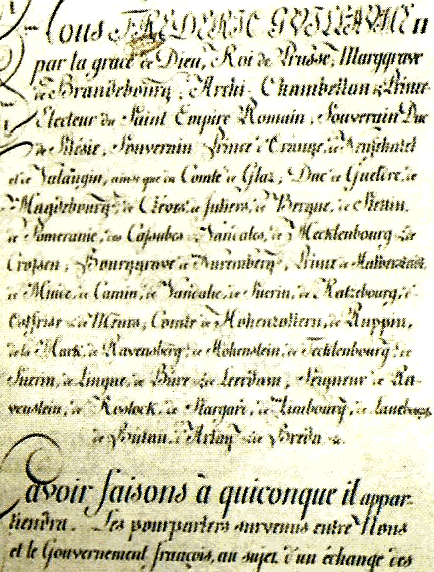 Nous FREDERIC GUILLAUME II
par la grace de Dieu, Roi de Prusse, Marggrave
de Brandebourg, Archi-Chambellan & Prince-
Electeur du Saint Empire Romain, Souverain Duc
de Silésie, Souverain Prince d'Orange, de Neufchatel
et de Valangin, ainsi que du Comté de Glaz, Duc de Gueldre, de
Magdebourg, de Cleves, de Juliers, de Bergue, de Stettin,
de Pomeranie, des Cassubes & Vandales, de Mecklenbourg & de
Crossen, Bourggrave de Nuremberg, Prince de Halberstadt,
de Minde, de Camin, de Vandalie, de Suerin, de Ratzebourg, d'
Ostfrise & de Meurs, Comte de Hohenzollern, de Ruppin,
de la Mark, de Ravensberg, de Hohenstein, de Tecklenbourg, de
Suerin, de Lingue, de Bure & de Leerdam, Seigneur de Ra-
venstein, de Rostock, de Stargart, de Limbourg, de Lauebourg,
de Butau, d'Arlay & de Breda &.
Savoir faisons à quiconque il appar-
tiendra. Les pourparlers survenus entre Nous
et le Gouvernement françois, au sujet d'un échange des